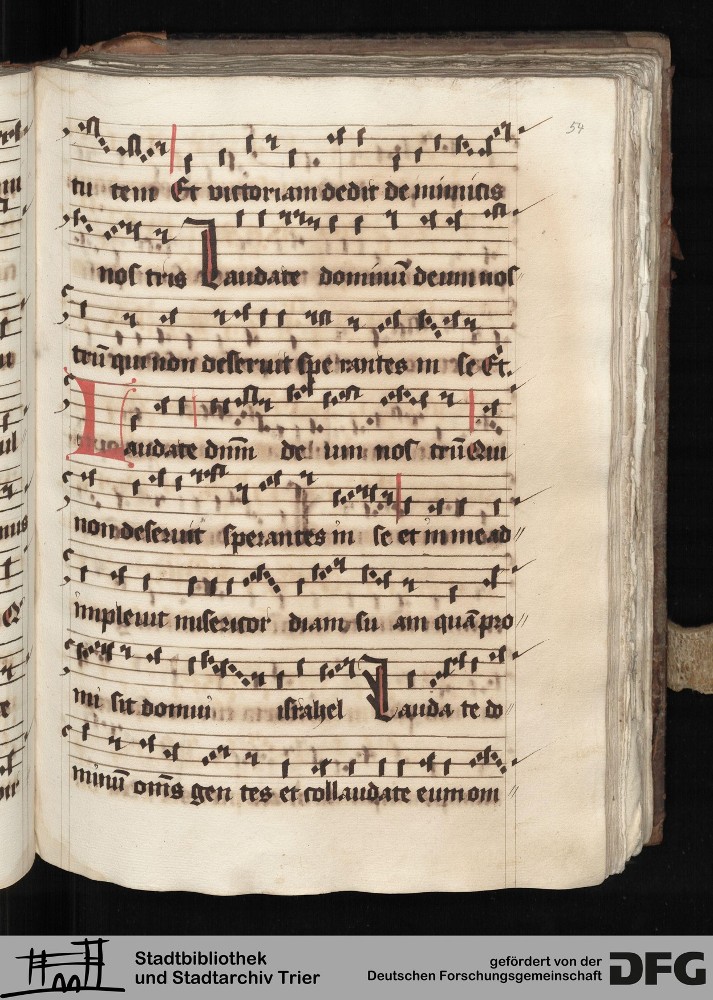 54
tu tem Et victoriam dedit de inimicis
nos tris Laudate dominū deum nos
trū qui non deseruit spe rantes in se Et.
Laudate dnm̄ de um nos trū Qui
non deseruit sperantes in se et in me ad
impleuit misericor diam su am quā pro
mi sit domui israhel Lauda te do
minū om̄s gen tes et collaudate eum om
Stadtbibliothek
und Stadtarchiv Trier
gefördert von der
Deutschen Forschungsgemeinschaft
DFG